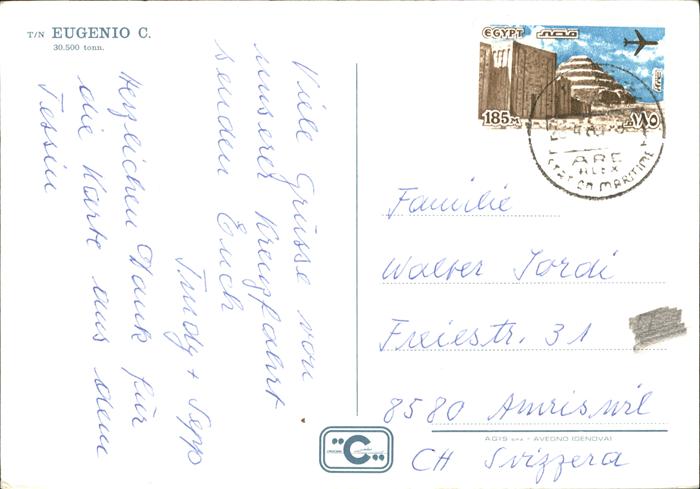 T/N EUGENIO C.
30.500 tonn.
Viele Grüsse von
unserer Kreuzfahrt
senden Euch
Trudy + Sepp
Herzlichen Dank für
die Karte aus dem
Tessin
EGYPT مصر
185M ١٨٥
ARE
ALEX
MARITIME
Familie
Walter Jordi
Freiestr. 31
8580 Amriswil
AGIS S.P.A. - AVEGNO (GENOVA)
CH Svizzera
C